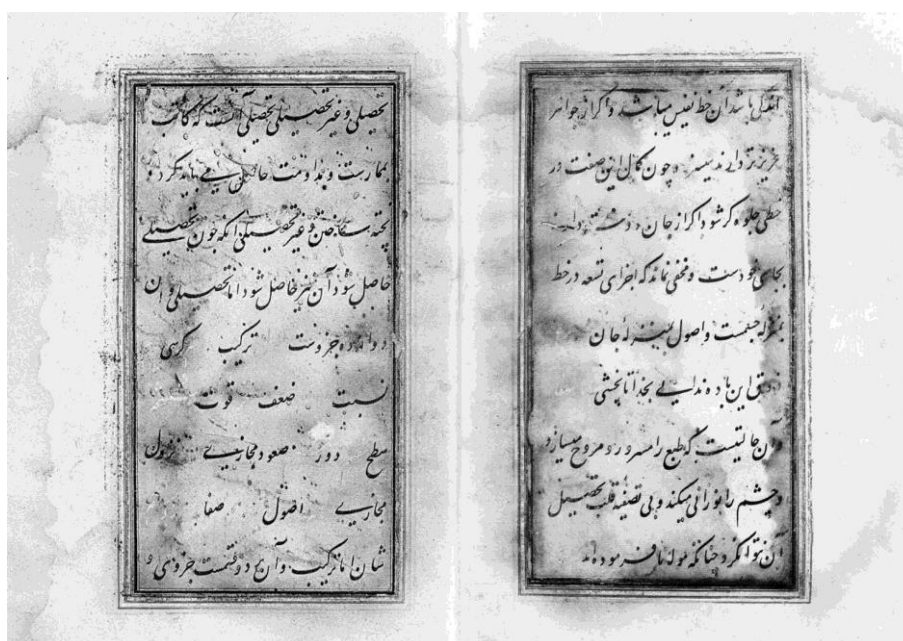 اندک باشد آن خط نفیس میباشد و اگر از جواهر
عزیزتر دارند میسزد و چون کمال این صفت در
خطی جلوه گر شود اگر از جان دوستتر دارند
بجای خودست و مخفی نماند که اجزای تسعه در خط
بمنزله جسمست و اصول بمنزله جان
ذوق این باده ندانی بخدا تا نچشی
و آن حالتیست که طبع را مسرور و مروح میسازد و
و چشم را نورانی میکند و بی تصفیه قلب تحصیل
آن نتوان کرد چنانکه مولانا فرموده اند
تحصیلی و غیر تحصیلی تحصیلی آنست که کاتب
بممارست و مداومت حاصل می باید کرد
و غیر تحصیلی آنکه چون تحصیلی
حاصل شود آن نیز حاصل شود اما تحصیلی و آن
دوازده جزوست ترکیب کرسی
نسبت ضعف قوت
سطح دور صعود مجازیی نزول
مجازیی اصول صفا
شان اما ترکیب و آن بر دو قسمت جزوی و